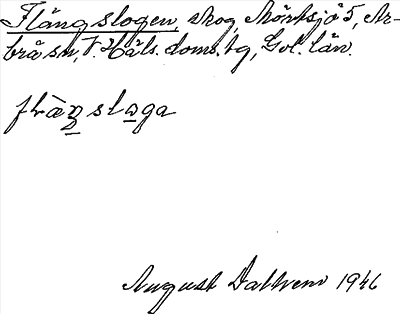 Flängslogen, skog, Mörtsjö 5, Ar-
brå sn, V. Häls. doms. tg, Gvl. län.
flæ̀ŋ slɷga
August Dalhem 1946